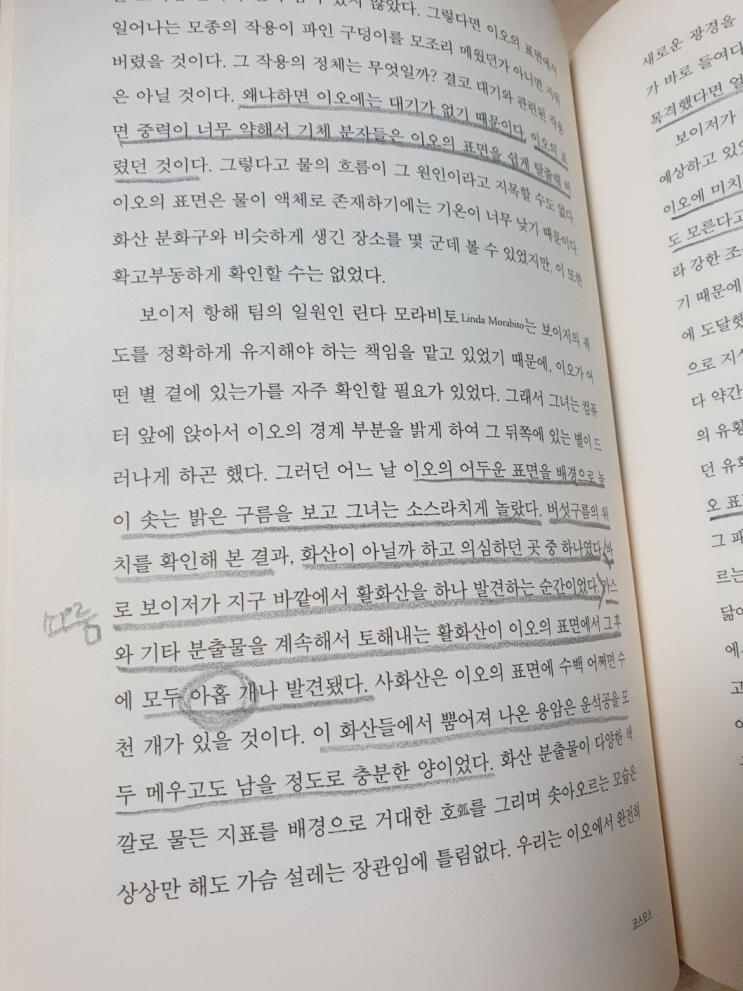 않았다. 그렇다면 이오의 표면에서
일어나는 모종의 작용이 파인 구덩이를 모조리 메웠던가 아니면 지워
버렸을 것이다. 그 작용의 정체는 무엇일까? 결코 대기와 관련된 작용
은 아닐 것이다. 왜냐하면 이오에는 대기가 없기 때문이다. 이오의 표
면 중력이 너무 약해서 기체 분자들은 이오의 표면을 쉽게 탈출해 버
렸던 것이다. 그렇다고 물의 흐름이 그 원인이라고 지목할 수도 없다.
이오의 표면은 물이 액체로 존재하기에는 기온이 너무 낮기 때문이다.
화산 분화구와 비슷하게 생긴 장소를 몇 군데 볼 수 있었지만, 이 또한
확고부동하게 확인할 수는 없었다.
보이저 항해 팀의 일원인 린다 모라비토Linda Morabito는 보이저의 궤
도를 정확하게 유지해야 하는 책임을 맡고 있었기 때문에, 이오가 어
떤 별 곁에 있는가를 자주 확인할 필요가 있었다. 그래서 그녀는 컴퓨
터 앞에 앉아서 이오의 경계 부분을 밝게 하여 그 뒤쪽에 있는 별이 드
러나게 하곤 했다. 그러던 어느 날 이오의 어두운 표면을 배경으로 높
이 솟는 밝은 구름을 보고 그녀는 소스라치게 놀랐다. 버섯구름의 위
치를 확인해 본 결과, 화산이 아닐까 하고 의심하던 곳 중 하나였다. 바
로 보이저가 지구 바깥에서 활화산을 하나 발견하는 순간이었다. 가스
와 기타 분출물을 계속해서 토해내는 활화산이 이오의 표면에서 그 후
에 모두 아홉 개나 발견됐다. 사화산은 이오의 표면에 수백 어쩌면 수
천 개가 있을 것이다. 이 화산들에서 뿜어져 나온 용암은 운석공을 모
두 메우고도 남을 정도로 충분한 양이었다. 화산 분출물이 다양한 색
깔로 물든 지표를 배경으로 거대한 호弧를 그리며 솟아오르는 모습은
상상만 해도 가슴 설레는 장관임에 틀림없다. 우리는 이오에서 완전히
코스모스
새로운 광경을
가 바로 들여다
목격했다면 얼
보이저가
예상하고 있었
이오에 미치
도 모른다고
라 강한 조
기 때문에
에 도달했
으로 지
다 약간
의 유황
던 유화
오 표
그 파
르는
닮아